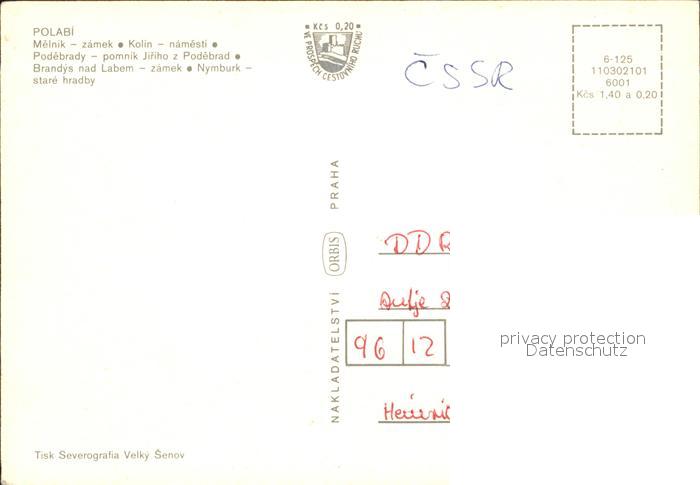 POLABÍ
Mělník – zámek • Kolín – náměstí •
Poděbrady – pomník Jiřího z Poděbrad •
Brandýs nad Labem – zámek • Nymburk –
staré hradby
Kčs 0,20
VE PROSPĚCH CESTOVNÍHO RUCHU
ČSSR
6-125
110302101
6001
Kčs 1,40 a 0,20
NAKLADATELSTVÍ ORBIS PRAHA
DDR
Antje
96 12
Heinric
privacy protection
Datenschutz
Tisk Severografia Velký Šenov